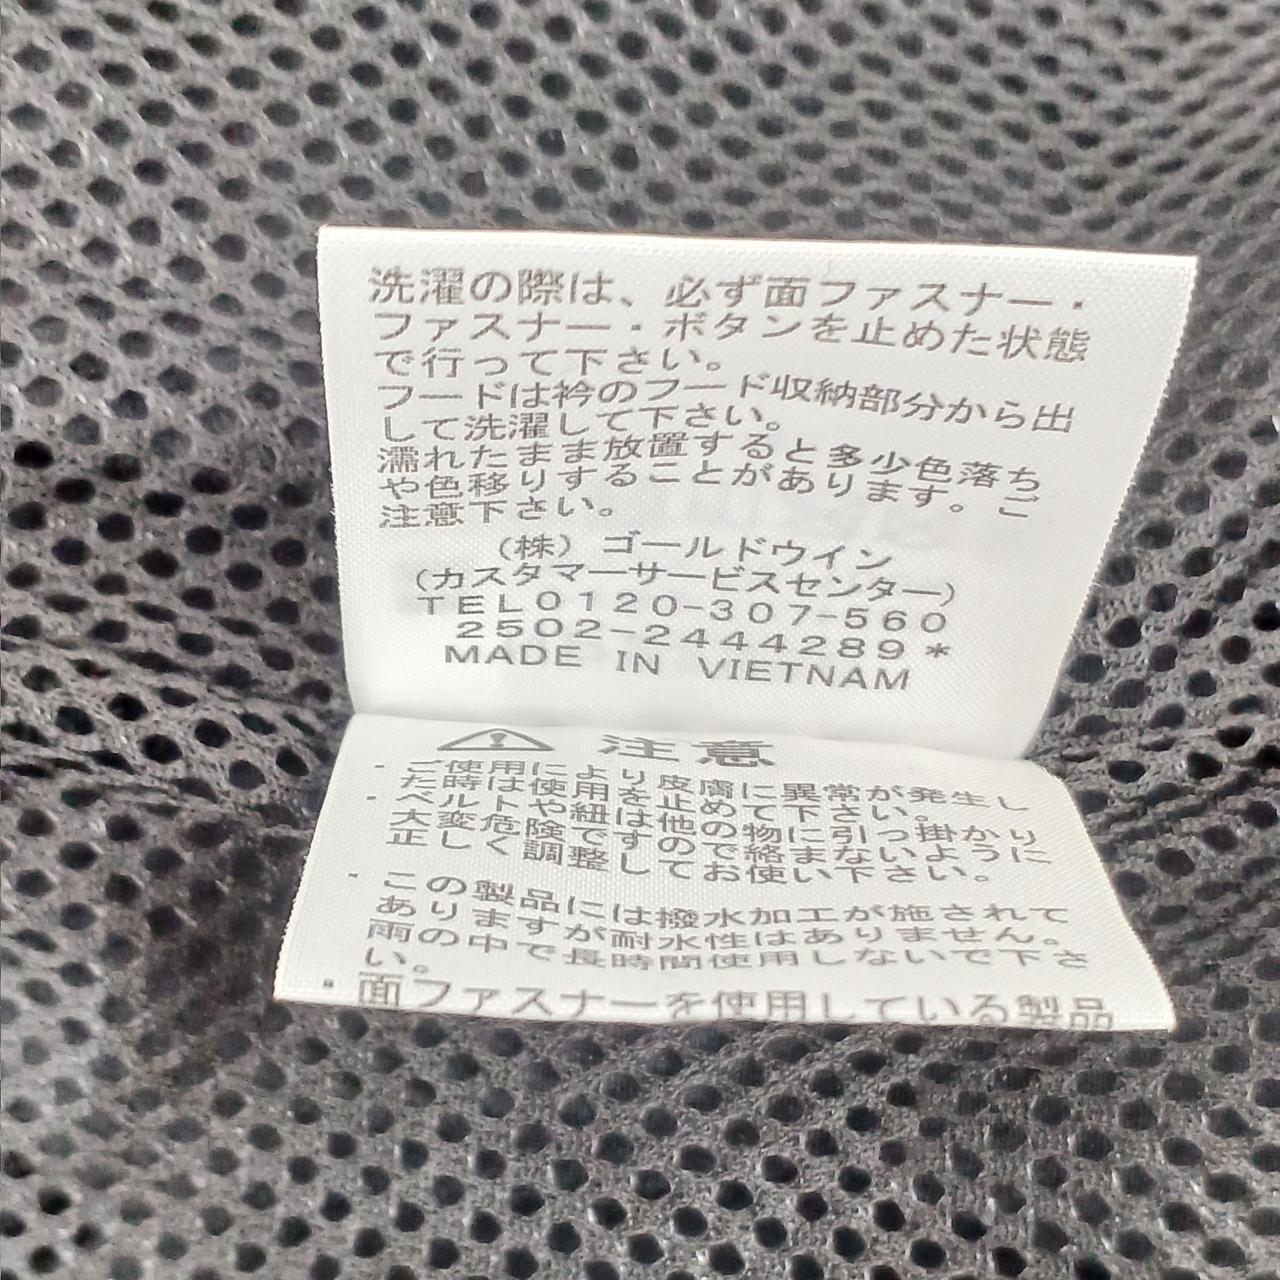 洗濯の際は、必ず面ファスナー・
ファスナー・ボタンを止めた状態
で行って下さい。
フードは衿のフード収納部分から出
して洗濯して下さい。
濡れたまま放置すると多少色落ち
や色移りすることがあります。ご
注意下さい。
(株) ゴールドウイン
(カスタマーサービスセンター)
TEL0120-307-560
2502-2444289*
MADE IN VIETNAM
注意
・ご使用により皮膚に異常が発生し
た時は使用を止めて下さい。
・ベルトや紐は他の物に引っ掛かり
大変危険ですので絡まないように
正しく調整してお使い下さい。
・この製品には撥水加工が施されて
ありますが耐水性はありません。
雨の中で長時間使用しないで下さ
い。
・面ファスナーを使用している製品